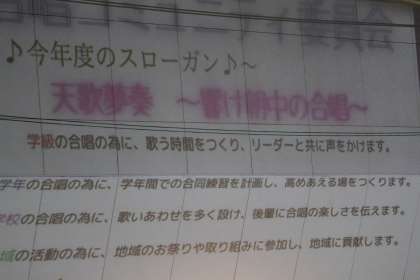 合唱コミュニティ委員会
♪今年度のスローガン♪～
天歌夢奏　～響け 中の合唱～
学級の合唱の為に、歌う時間をつくり、リーダーと共に声をかけます。
学年の合唱の為に、学年間での合同練習を計画し、高めあえる場をつくります。
学校の合唱の為に、歌いあわせを多く設け、後輩に合唱の楽しさを伝えます。
地域の活動の為に、地域のお祭りや取り組みに参加し、地域に貢献します。